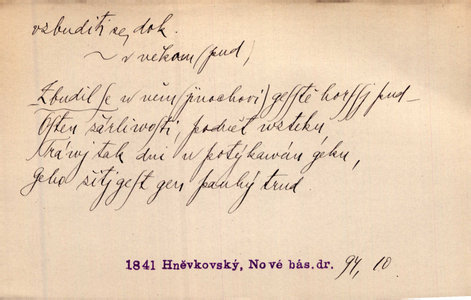 vzbuditi se, dok.
~ v někom (pud)
Zbudil se w něm (jinochowi) gesstě horssj pud –
Osten žárliwosti, podnět wzteku,
Tráwj tak dni w potýkawán geku,
Geho žitj gest gen pauhý trud.
1841 Hněvkovský, Nové bás. dr. 94, 10.